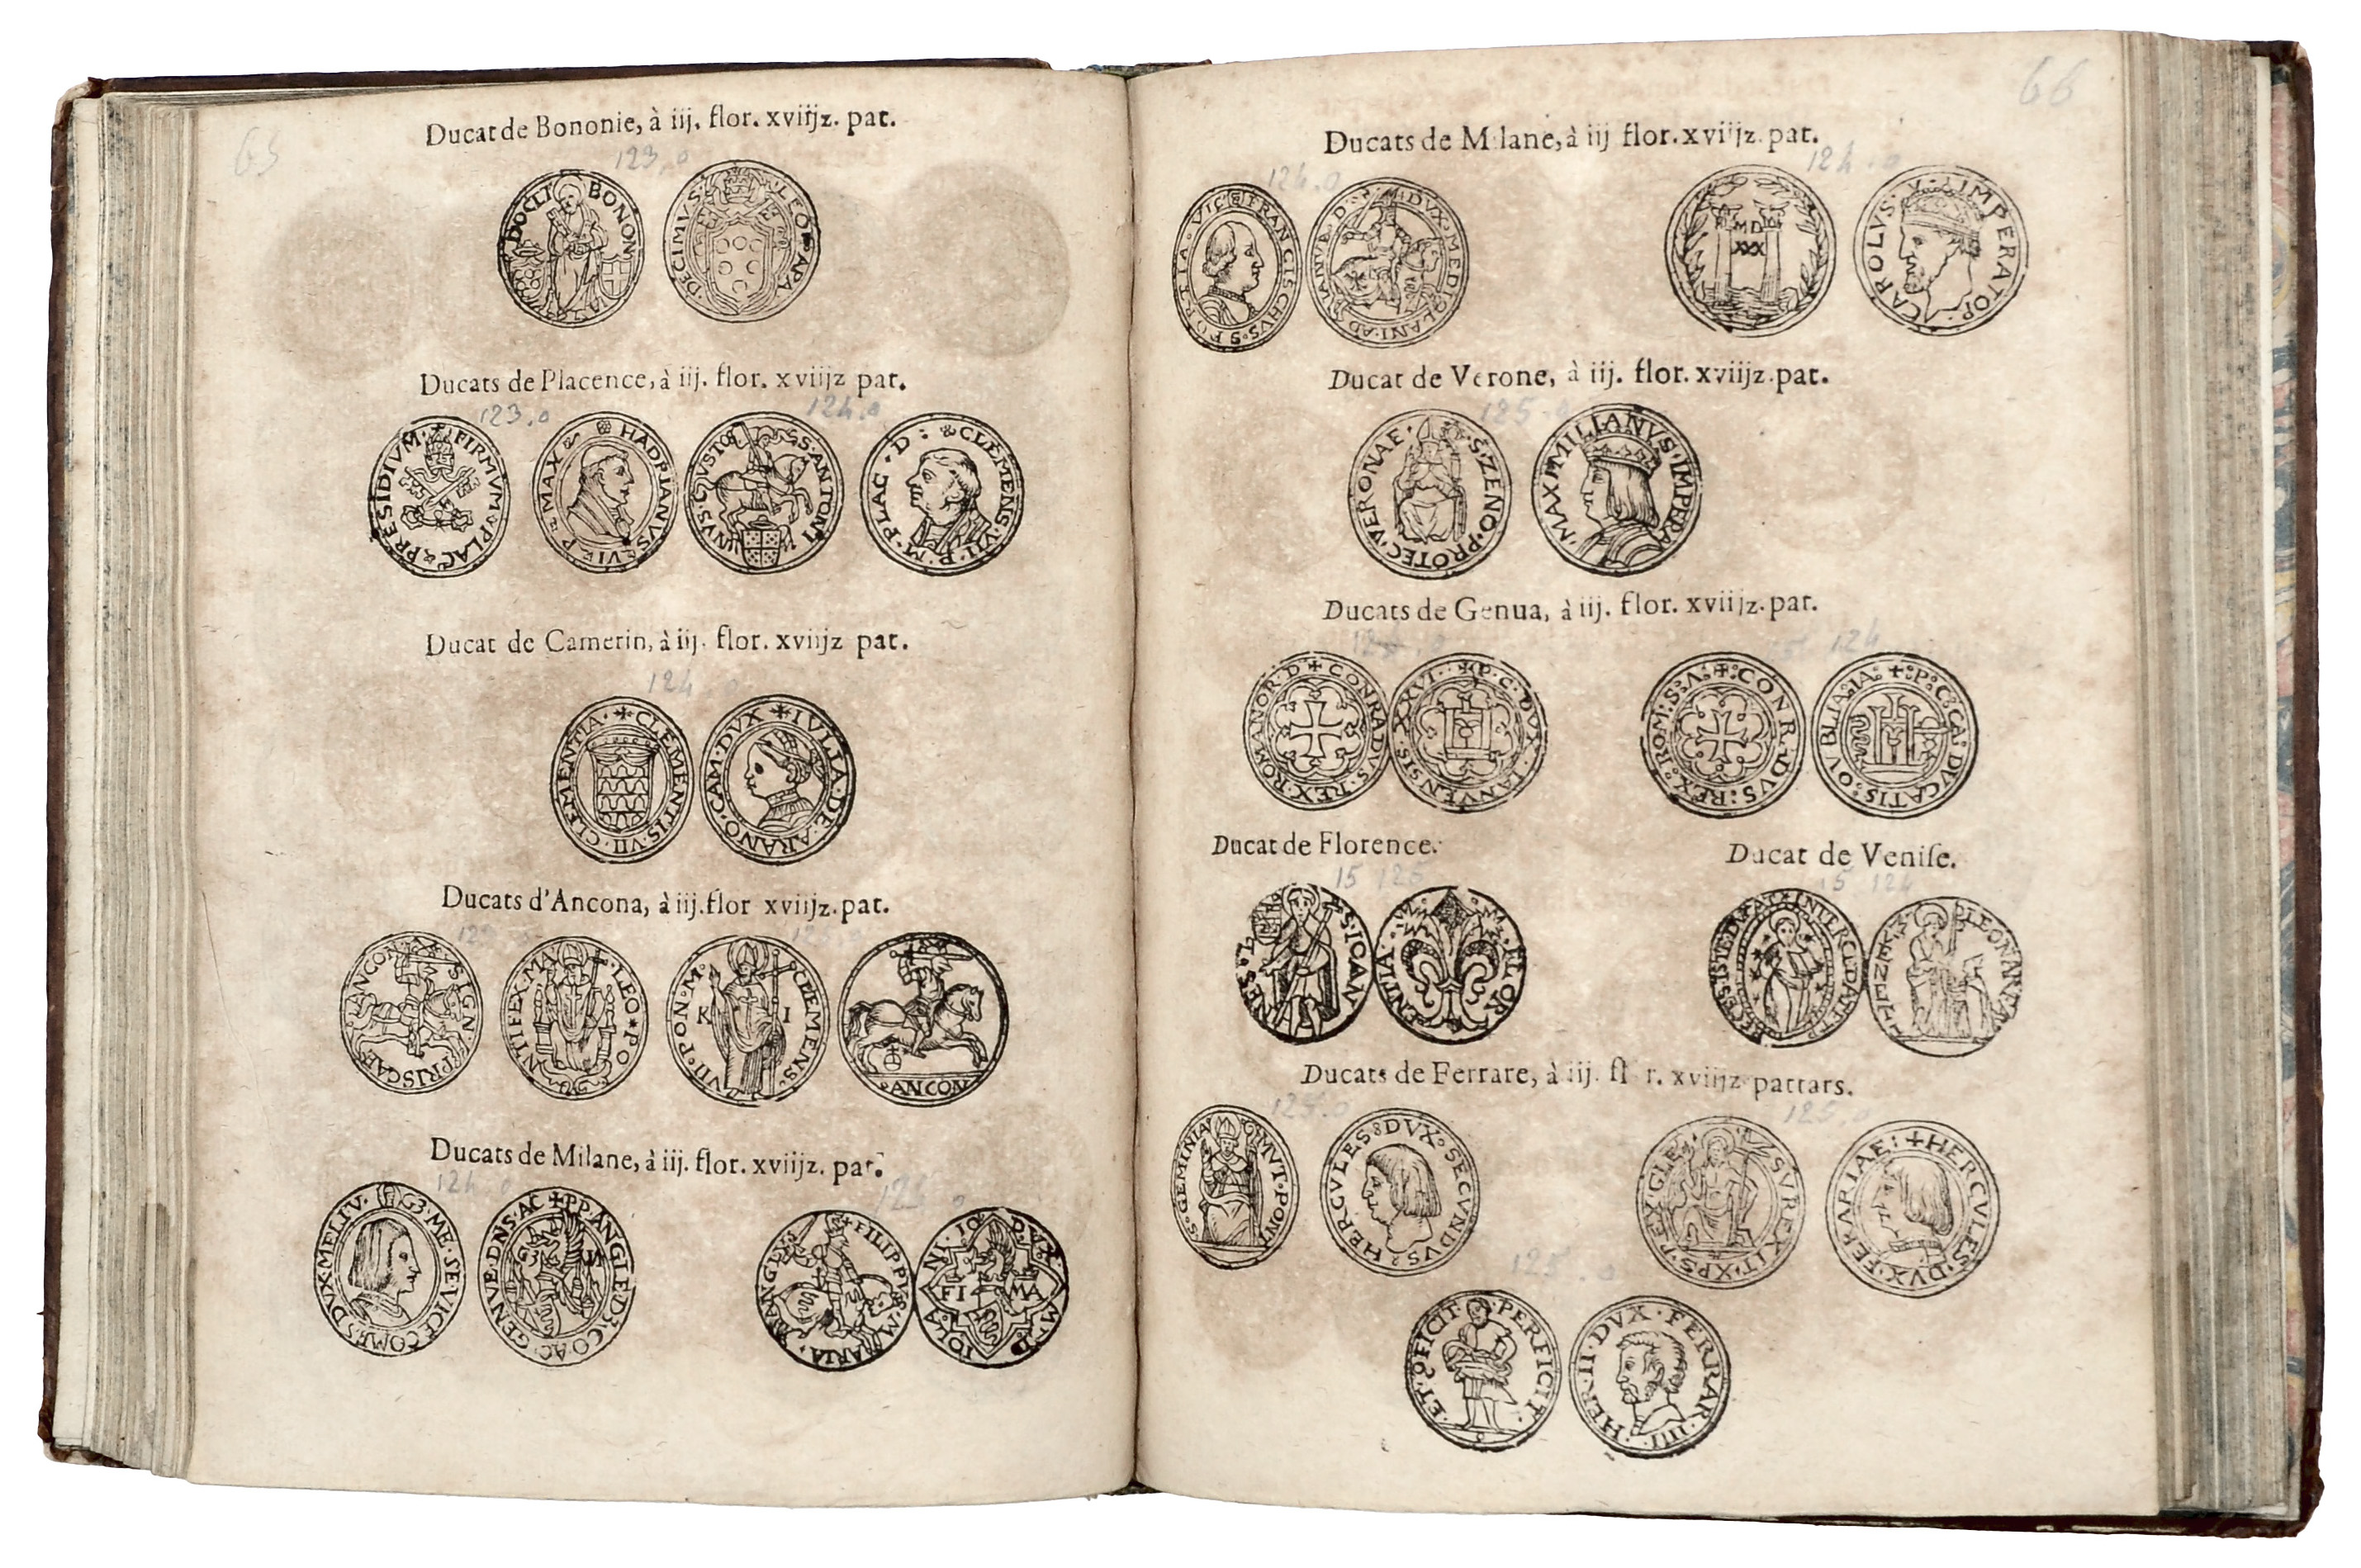 65
Ducat de Bononie, à iij. flor. xviijz. pat.
123.0
DOCLT BONONIA
DECIMVS LEO PAPA
Ducats de Placence, à iij. flor. xviijz pat.
123.0 124.0
PRESIDIVM FIRMVM PLAC
HADRIANVS VI P MAX
S·ANTONI NVS·GVSTO
CLEMENS·VII·P M·PLAC·D:
Ducat de Camerin, à iij. flor. xviijz pat.
124
CLEMENTIS·VII·CLEMENTIA·
IVLIA·DE·ARANO·CAM·DVX
Ducats d'Ancona, à iij. flor xviijz. pat.
ANCON S IGN PRISCAE
LEO PO NTIFEX·MA
CLEMENS·VII·PON·M K I
ANCON
Ducats de Milane, à iij. flor. xviijz. pat.
124.0
G3·ME·SE·VICECOMES DVX·MELI V·
PP·ANGLE·D3·CO·AC·GENVE·DNS·AC
FILIPPVS M ARIA ANGL
FI MA
66
Ducats de Milane, à iij flor. xviijz. pat.
124.0 124.0
FRANCISCHVS·SFORTIA·VIC
DVX·MEDIOLANI·AD
MD XXX
CAROLVS·V·IMPERATOR
Ducat de Verone, à iij. flor. xviijz. pat.
125.0
S·ZENO·PROTEC·VERONAE·
MAXIMILIANVS·IMPERA
Ducats de Genua, à iij. flor. xviijz. pat.
124
CONRADVS·REX·ROMANOR·D
P·C·DVX·IANVENSIS·XXVI·
CONR·DVS:REX:ROM:S:A:
P:C:CA:DVCATIS:OVBLIA:IA:
Ducat de Florence. Ducat de Veniſe.
15 125 15 124
S·IOAN NES·
FLOR ENTIA·
LEONAR
Ducats de Ferrare, à iij. flor. xviijz pattars.
125.0 125.0
S·GEMINIA MVT·PONT
HERCVLES DVX SECVNDVS
SVREXIT·XPS·REX·GLE
HERCVLES·DVX·FERARIAE:
125.0
ET·OFICIT·PERFICIT·
HER·II·DVX·FERRAR·IIII·